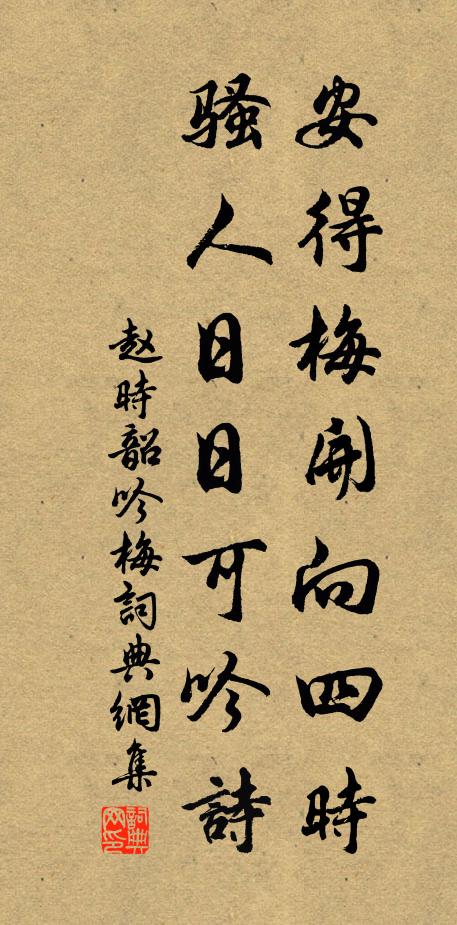 安得梅開向四時
騷人日日可吟詩
赵時韶吟梅詞典網集
詞典網印